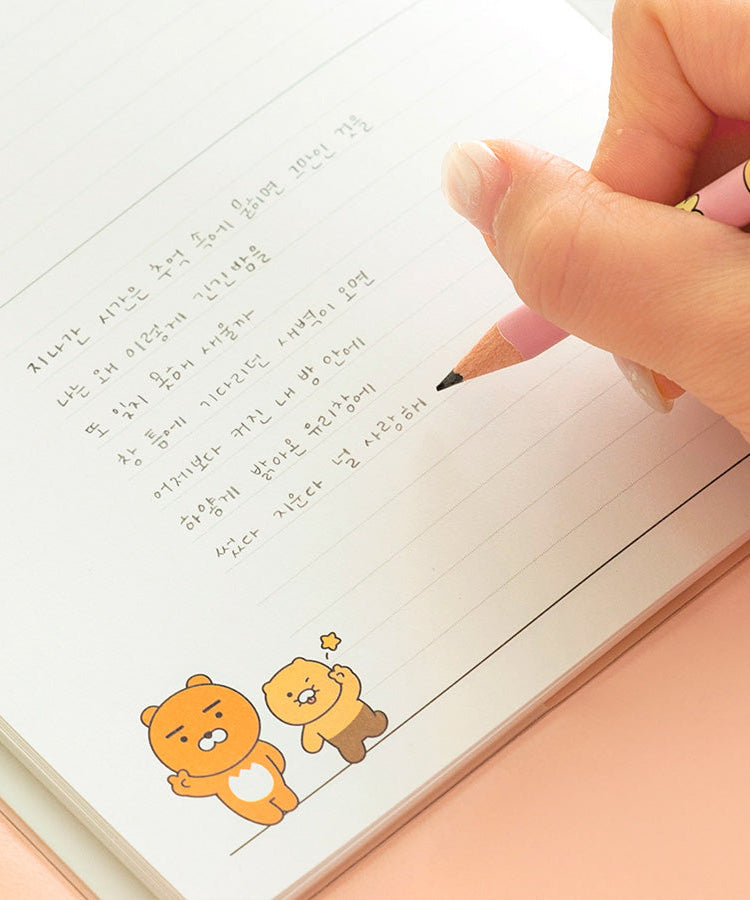 지나간 시간은 추억 속에 묻히면 그만인 것을
나는 왜 이렇게 긴긴밤을
또 잊지 못해 새울까
창 틈에 기다리던 새벽이 오면
어제보다 커진 내 방 안에
하얗게 밝아온 유리창에
썼다 지운다 널 사랑해